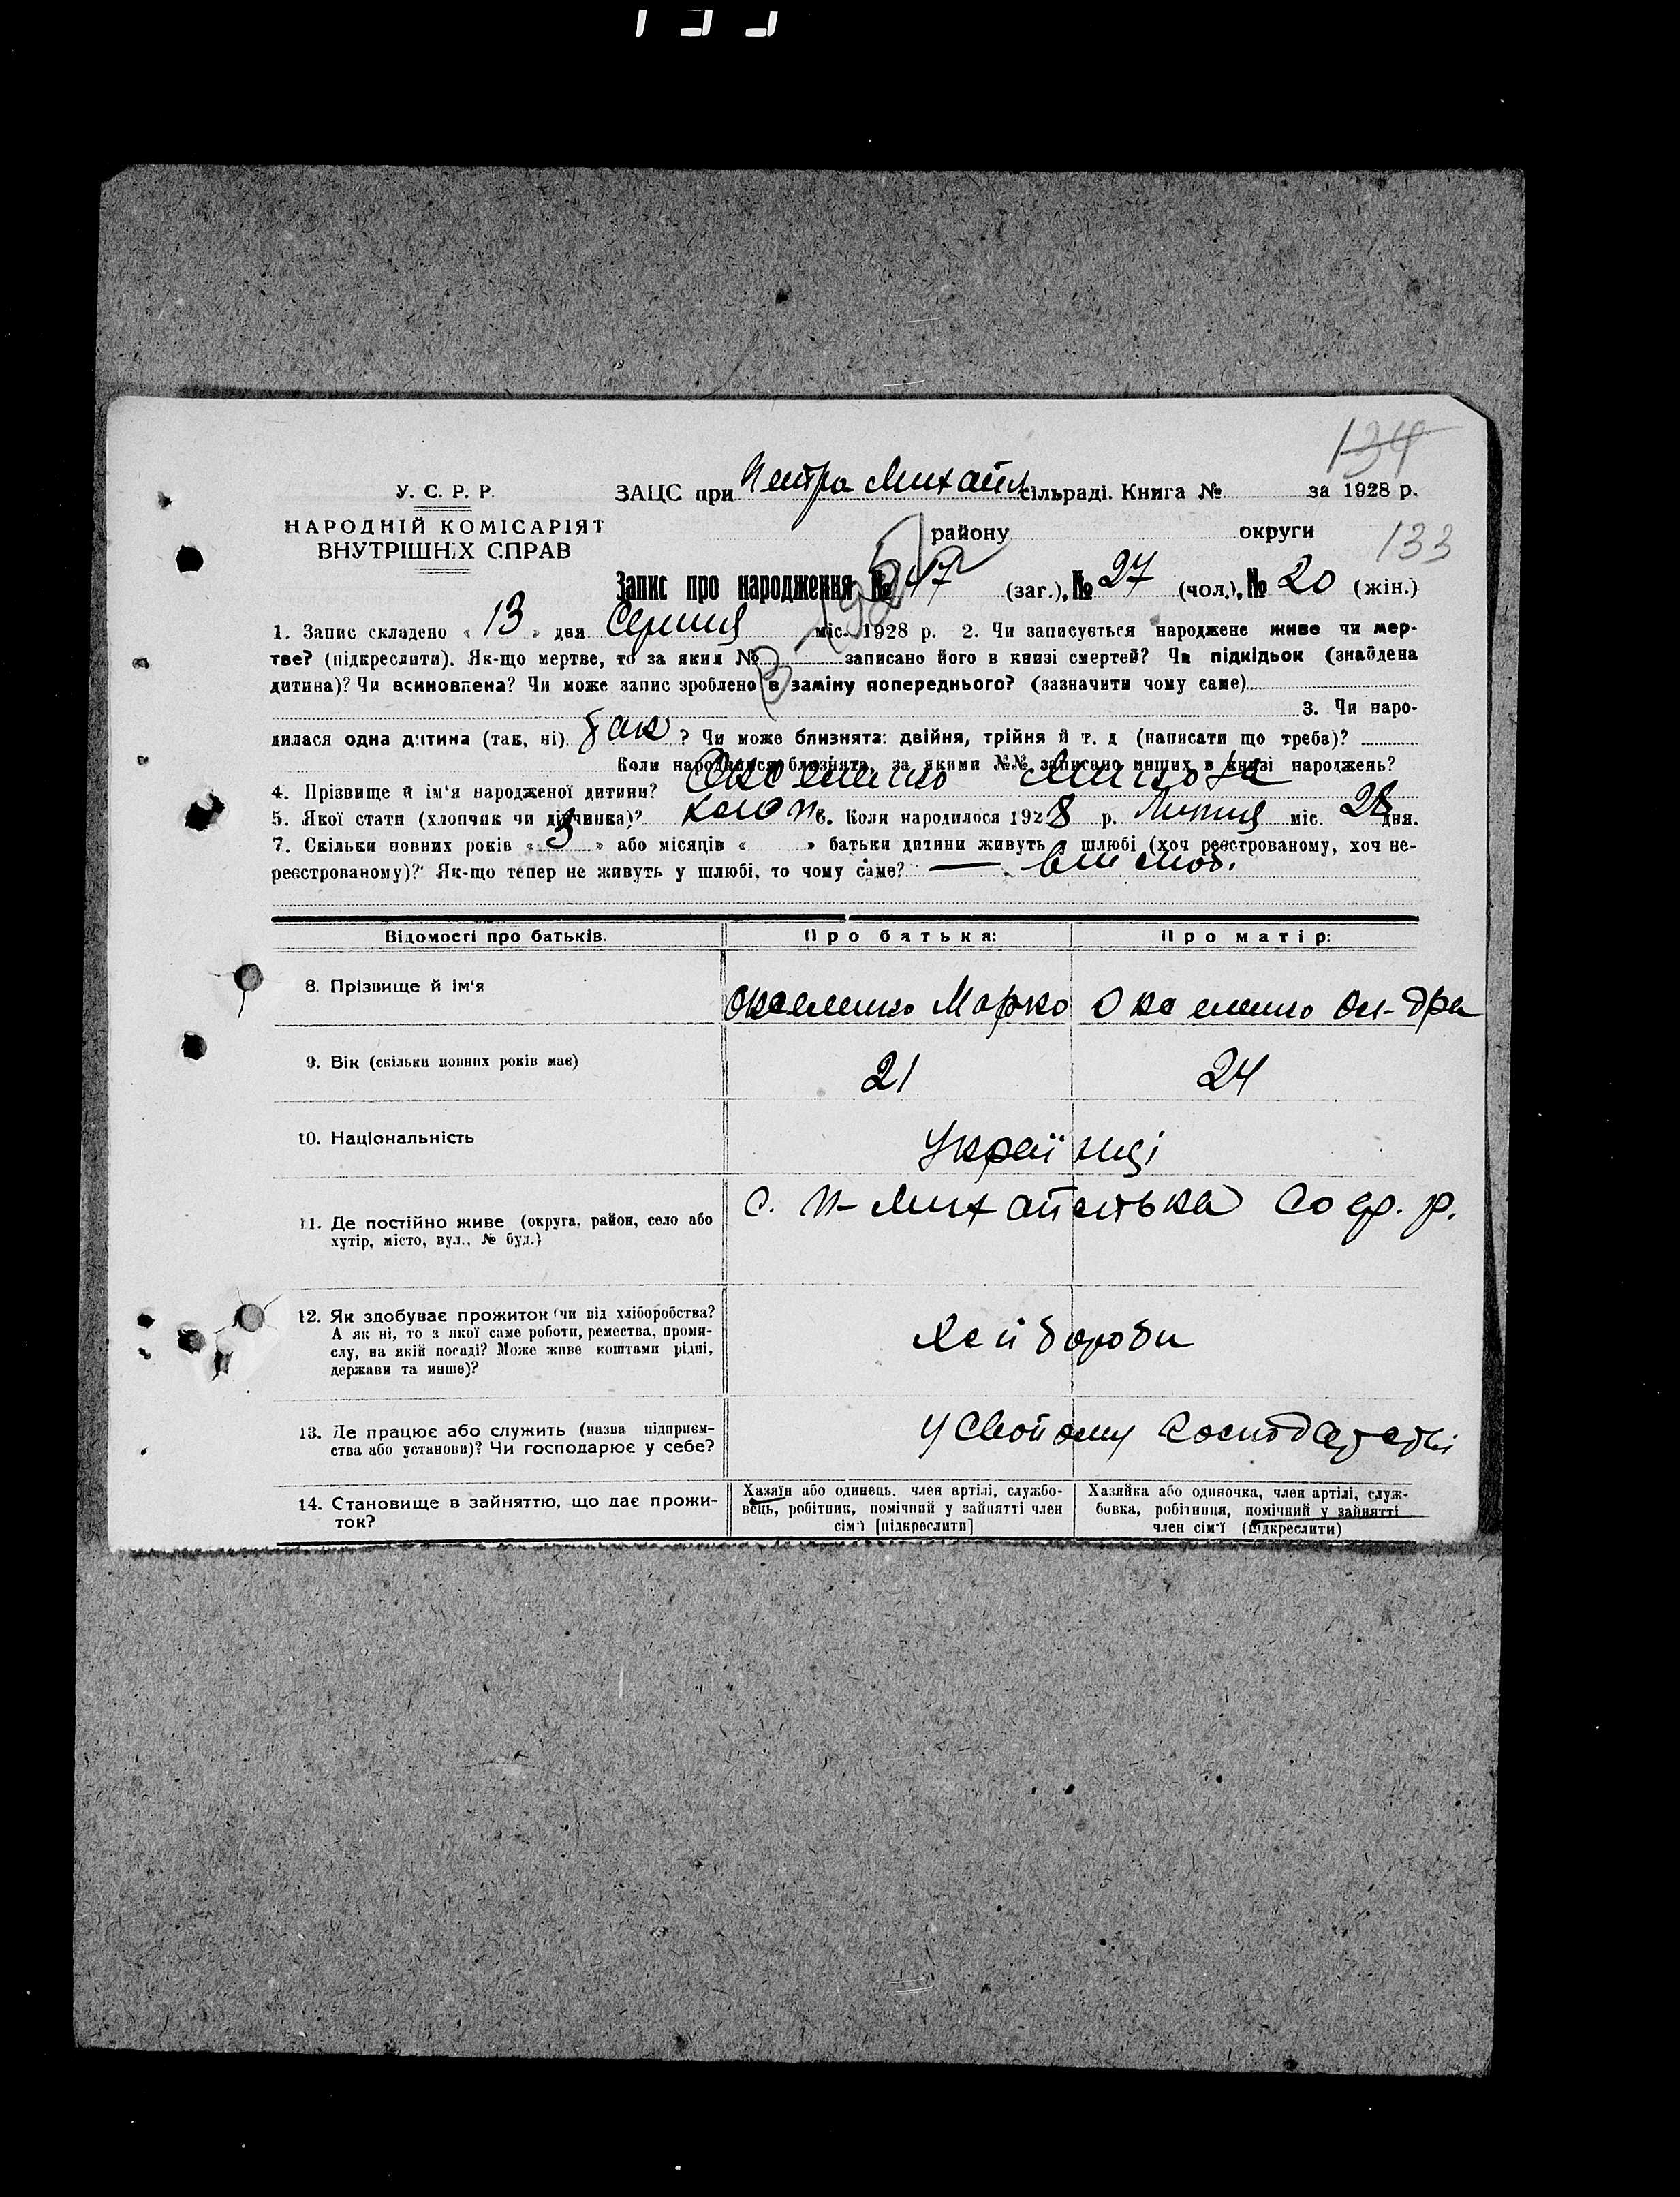 134
У. С. Р. Р.
ЗАЦС при Петро Михайл сільраді. Книга № за 1928 р.
НАРОДНІЙ КОМІСАРІЯТ
ВНУТРІШНІХ СПРАВ
району округи 133
Запис про народження № 47 (заг.), № 27 (чол.), № 20 (жін.)
1. Запис складено « 13 » дня Серпня міс. 1928 р. 2. Чи записується народжене живе чи мер-
тве? (підкреслити). Як-що мертве, то за яким № записано його в книзі смертей? Чи підкідьок (знайдена
дитина)? Чи всиновлена? Чи може запис зроблено в заміну попереднього? (зазначити чому саме)
3. Чи наро-
дилася одна дитина (так, ні) так ? Чи може близнята: двійня, трійня й т. д (написати що треба)?
Коли народилися близнята, за якими №№ записано инших в книзі народжень?
4. Прізвище й ім'я народженої дитини?
5. Якої стати (хлопчик чи дівчинка)? хлоп 6. Коли народилося 1928 р. Липня міс. 28 дня.
7. Скільки повних років « 3 » або місяців « » батьки дитини живуть у шлюбі (хоч реєстрованому, хоч не-
реєстрованому)? Як-що тепер не живуть у шлюбі, то чому саме? —
Відомості про батьків. Про батька: Про матір:
8. Прізвище й ім'я Марко
9. Вік (скільки повних років має) 21 24
10. Національність Українці
11. Де постійно живе (округа, район, село або
хутір, місто, вул., № буд.) с. П-Михайлівка
12. Як здобуває прожиток (чи від хліборобства?
А як ні, то з якої саме роботи, ремества, проми-
слу, на якій посаді? Може живе коштами рідні,
держави та инше)? Хлібороби
13. Де працює або служить (назва підприєм-
ства або установи)? Чи господарює у себе? У свойому господарстві
14. Становище в зайняттю, що дає прожи-
ток?
Хазяїн або одинець, член артілі, службо-
вець, робітник, помічний у зайнятті член
сім'ї [підкреслити]
Хазяйка або одиночка, член артілі, служ-
бовка, робітниця, помічний у зайнятті
член сім'ї (підкреслити)